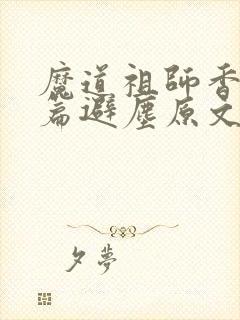 魔道祖師香
篇避塵原文
夕夢